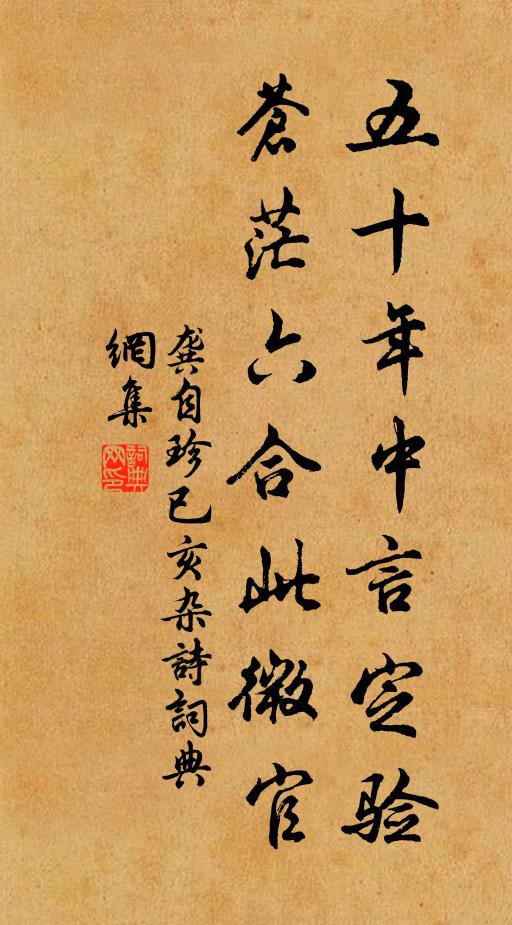 五十年中言定验
蒼茫六合此微官
龚自珍已亥杂詩詞典
網集
詞典
网印